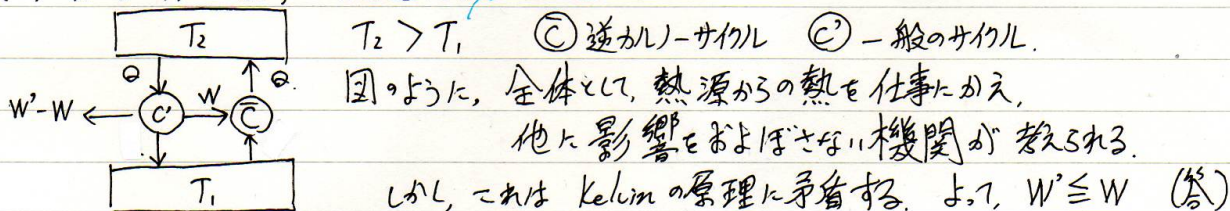 T₂
T₂ > T₁ C̄ 逆カルノーサイクル C' 一般のサイクル.
Q Q.
図のように, 全体として, 熱源からの熱を仕事にかえ,
W'-W C' W C̄
他に影響をおよぼさない機関が考えられる.
T₁
しかし, これは Kelvin の原理に矛盾する. よって, W' ≦ W (答)